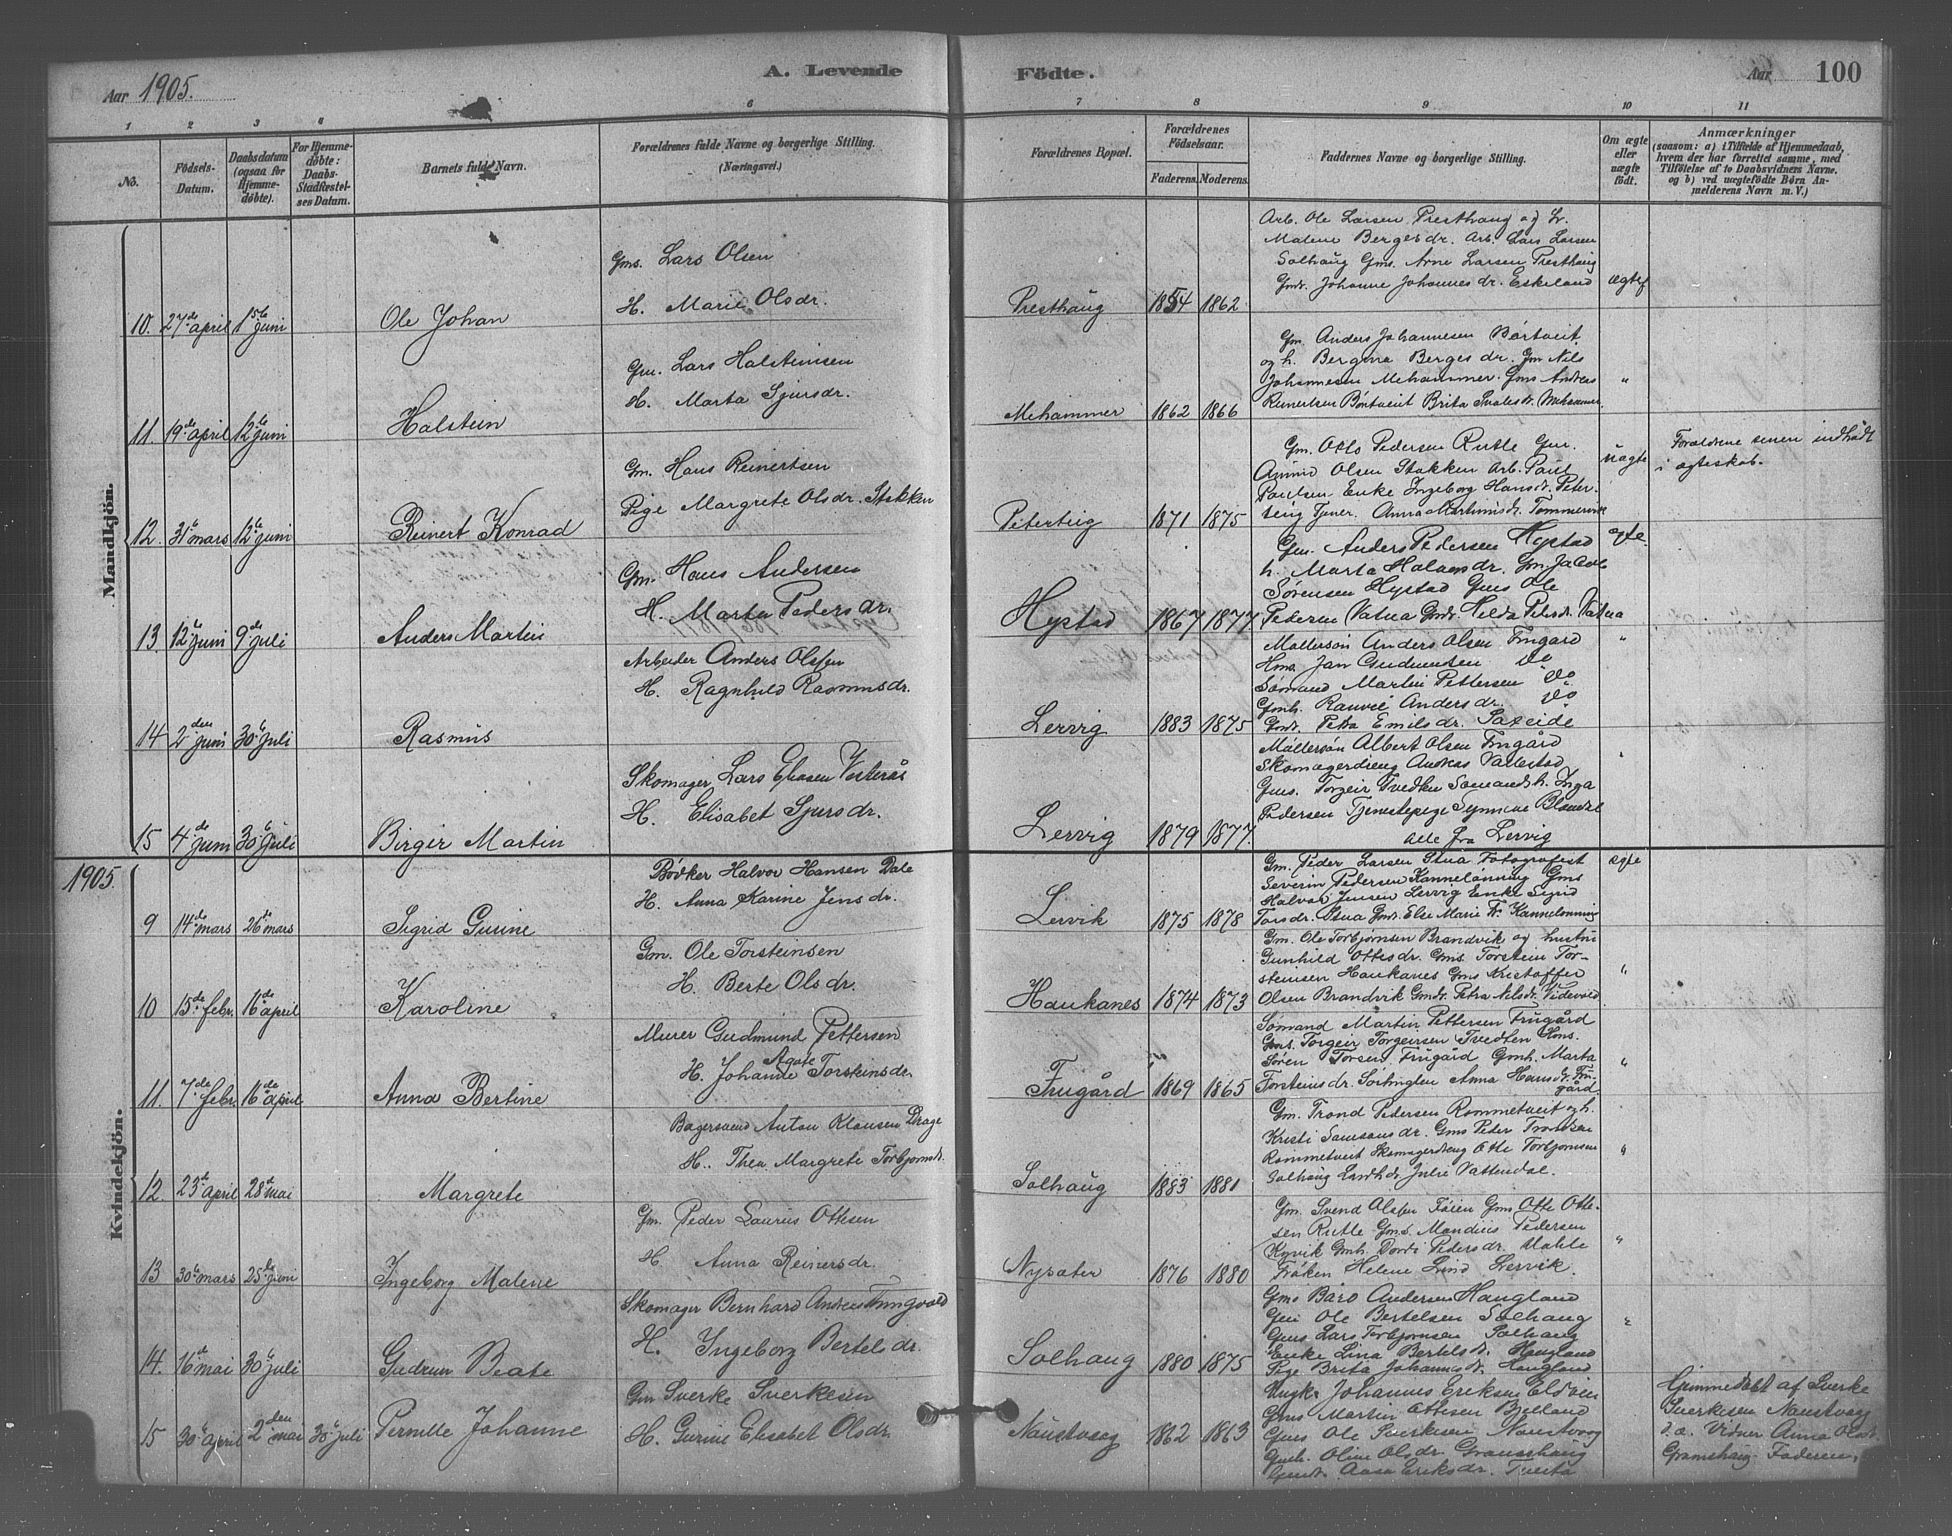 Aar 1905.
A. Levende Födte.
Aar 100
1 2 3 6 6 7 8 9 10 11
No.
Födsels-Datum.
Daabsdatum (ogsaa for Hjemmedöbte).
For Hjemmedöbte: Daabs-Stadfæstelses Datum.
Barnets fulde Navn.
Forældrenes fulde Navne og borgerlige Stilling.
(Næringsvei.)
Forældrenes Bopæl.
Forældrenes Födselsaar.
Faderens. Moderens.
Faddernes Navne og borgerlige Stilling.
Om ægte eller uægte födt.
Anmærkninger
(saasom: a) i Tilfælde af Hjemmedaab,
hvem der har forrettet samme, med
Tilföielse af to Daabsvidners Navne.
og b) ved uægtefödte Börn An-
melderens Navn m. V.)
Mandkjön.
10. 27de april 1ste juni Ole Johan
Gms. Lars Olsen
H. Marie Olsdr.
Presthaug 1854 1862
Arb. Ole Larsen Presthaug og h.
Malene Bergesdr. Arb. Lars Larsen
Solhaug Gms. Arne Larsen Presthaug
Gmdr. Johanne Johannesdr. Eskeland
ægtef
11. 19de april 12te juni Halstein
Gm. Lars Halsteinsen
H. Marta Sjursdr.
Mehammer 1862 1866
Gm. Anders Johannesen Börtveit
og h. Bergina Bergesdr. Gm Nils
Johannesen Mehammer. Gms Andreas
Reinertsen Börtveit Brita Mehammer
"
12. 31te mars 12te juni Reinert Konrad
Gm. Hans Reinertsen
Pige Margrete Olsdr. Stokken
Peterteig 1871 1875
Gm. Otto Pedersen Rutle Gm.
Olsen Stokken Arb. Paul
Paulsen Enke Ingeborg Hansdr. Peter-
teig Tjener. Anna Martinusdr. Tömmervik
uægte
Forældrene senere indtrådt
i ægteskab.
13. 12te juni 9de juli Anders Martin
Gm. Hans Andersen
H. Marta Pedersdr.
Hystad 1867 1877
Gm. Anders Pedersen Hystad
h. Marta dr. Gm Jakob
Sörensen Hystad Gms Ole
Pedersen Vatna Gmdr. Hilda Pedsdr. Vatna
ægte.
14 2den juni 30te juli Rasmus
Arbeider Anders Olsen
H. Ragnhild Rasmusdr.
Lervig 1883 1875
Möllersön Anders Olsen Frugård
Hms. Jan Gudmundsen do
Sömand Martin Pettersen do
Gmh. Ranvei Andersdr. do
Gmdr. Petra Emilsdr. Sateide
"
15 4de juni 30te juli Birgir Martin
Skomager Lars Eliasen Vesterås
H. Elisabet Sjursdr.
Lervig 1879 1877.
Möllersön Albert Olsen Frugård
Skomagerdreng Andreas Vallestad
Gms. Torgeir Tvedten Sömandsh. Inga
Pedersen Tjenestepige Synneve
alle fra Lervig
"
1905.
Kvindekjön.
9 14de mars 26de mars Sigrid Gurine
Bödker Halvor Hansen Dale
H. Anna Karine Jensdr.
Lervik 1875 1878
Gm. Peder Larsen Stua Fotograf
Severin Pedersen Kannelönning Gms
Halvor Jensen Lervig Enke Sigrid
Tarsdr. Stua Gmdr. Else Marie Kannelönning
ægte
10 15de febr. 16de april Karoline
Gm. Ole Torsteinsen
H. Berte Olsdr.
Haukanes 1874 1873
Gm. Ole Torbjörnsen Brandvik og hustru
Gunhild Ottesdr. Gms Torstein Tor-
steinsen Haukanes Gms Kristoffer
Olsen Brandvik Gmdr. Petra Nilsdr. Videvold
"
11. 7de febr. 16de april Anna Bertine
Murer Gudmund Pettersen
H. Johanne Agate Torsteinsdr.
Frugård 1869 1865
Sömand Martin Pettersen Frugård
Gms. Torgeir Torgeirsen Tvedten Hms.
Sören Torsen Frugård Gmh. Marta
Torsteinsdr. Anna Hansdr. Fru-
gård
"
12. 23de april 28de mai Margrete
Bagersvend Anton Klausen Drage
H. Thea Margrete Torbjörnsdr.
Solhaug 1883 1881
Gm. Trond Pedersen Rommetveit og h.
Kristi Samsonsdr. Gms Peder Trondsen
Rommetveit Skomagerdreng Otto Torbjörnsen
Solhaug Landh.dr. Julie Vattendal.
"
13 30te mars 25de juni Ingeborg Malene
Gm. Peder Laurus Ottesen
H Anna Reinersdr.
Nysæter 1876 1880
Gm. Svend Olsen Föien Gms Otte Otte-
sen Rutle Gms. Mandius Pedersen
Kyvik Gmh. Dordi Pedersdr. Vahle
Fröken Helene Lund Lervik.
"
14. 16de mai 30te juli Gudrun Beate
Skomager Bernhard Andreas Tungvold
H. Ingeborg Berteldr.
Solhaug 1880 1875
Gms Bård Andersen Haugland
Gm Ole Bertelsen Solhaug
Gms Lars Torbjörnsen Solhaug
Enke Lina Bertelsdr. Haugland
Pige Brita Johannesdr. Haugland
"
15 30te april 2den mai 30te juli Pernille Johanne
Gm Sverke Sverkesen
H. Gurine Elisabet Olsdr.
Naustvaag 1862 1863
Ungk. Johannes Eriksen Eldöen
Gms Martin Ottesen Bjelland
Gms Ole Sverkesen Naustvaag
Gmh. Oline Olsdr. Gramshaug
Gmdr. Aasa Eriksdr. Tveita
Hjemmedöbt af Sverke
Sverkesen Naustvaag
d.a. Vidner Anna Olsdr.
Gramshaug. Faderen.